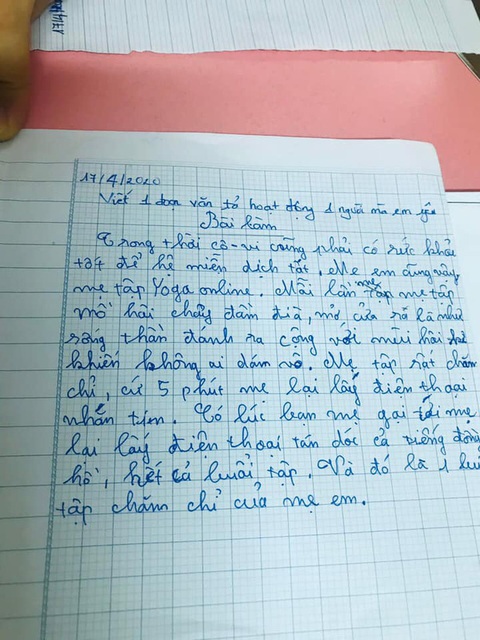 17/4/2020
Viết 1 đoạn văn tả hoạt động 1 người mà em yêu
Bài làm
Trong thời cô-vi cũng phải có sức khỏe
tốt để hệ miễn dịch tốt. Mẹ em cũng vậy
mẹ tập Yoga online. Mỗi lần mẹ tập mẹ tập
mồ hôi chảy đầm đìa, mở cửa ra là như
sóng thần đánh ra cộng với mùi hôi
khiến không ai dám vô. Mẹ tập rất chăm
chỉ, cứ 5 phút mẹ lại lấy điện thoại
nhắn tin. Có lúc bạn mẹ gọi tới mẹ
lại lấy điện thoại tán dóc cả tiếng đồng
hồ, hết cả buổi tập. Và đó là 1 buổi
tập chăm chỉ của mẹ em.